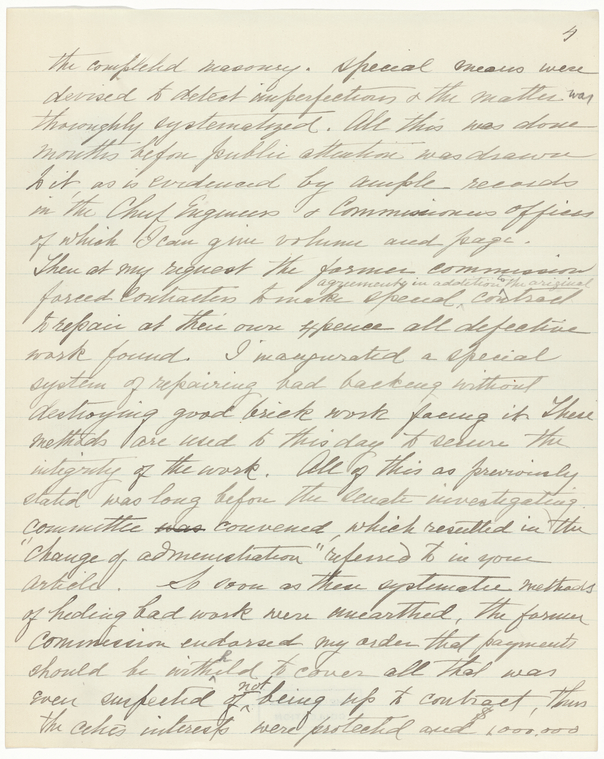 4
the completed masonry. Special means were
devised to detect imperfections & the matter was
thoroughly systematized. All this was done
months before public attention was drawn
to it, as is evidenced by ample records
in the Chief Engineers & Commissioners offices
of which I can give volume and page.
Then at my request the former commission
agreements in addition to the original
forced contractors to make special ^ contract
to repair at their own expence all defective
work found. I inaugurated a special
system of repairing bad backing without
destroying good brick work facing it. These
methods are used to this day to secure the
integrity of the work. All of this as previously
stated was long before the senate investigating
committee was convened, which resulted in the
"Change of administration" referred to in your
article. So soon as these systematic methods
of hiding bad work were unearthed, the former
Commission endorsed my order that payments
should be withheld to cover all that was
even suspected of not being up to contract, thus
the cities interests were protected and $1,000,000